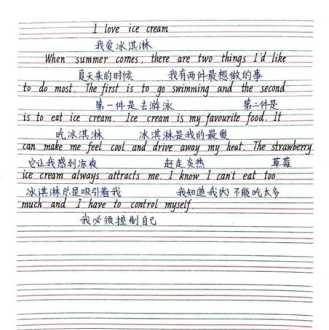 I love ice cream
我爱冰淇淋
When summer comes, there are two things I'd like
夏天来的时候 我有两件最想做的事
to do most. The first is to go swimming and the second
第一件是去游泳 第二件是
is to eat ice cream. Ice cream is my favourite food. It
吃冰淇淋 冰淇淋是我的最爱
can make me feel cool and drive away my heat. The strawberry
它让我感到凉爽 赶走炎热 草莓
ice cream always attracts me. I know I can't eat too
冰淇淋总是吸引着我 我知道我不能吃太多
much and I have to control myself.
我必须控制自己